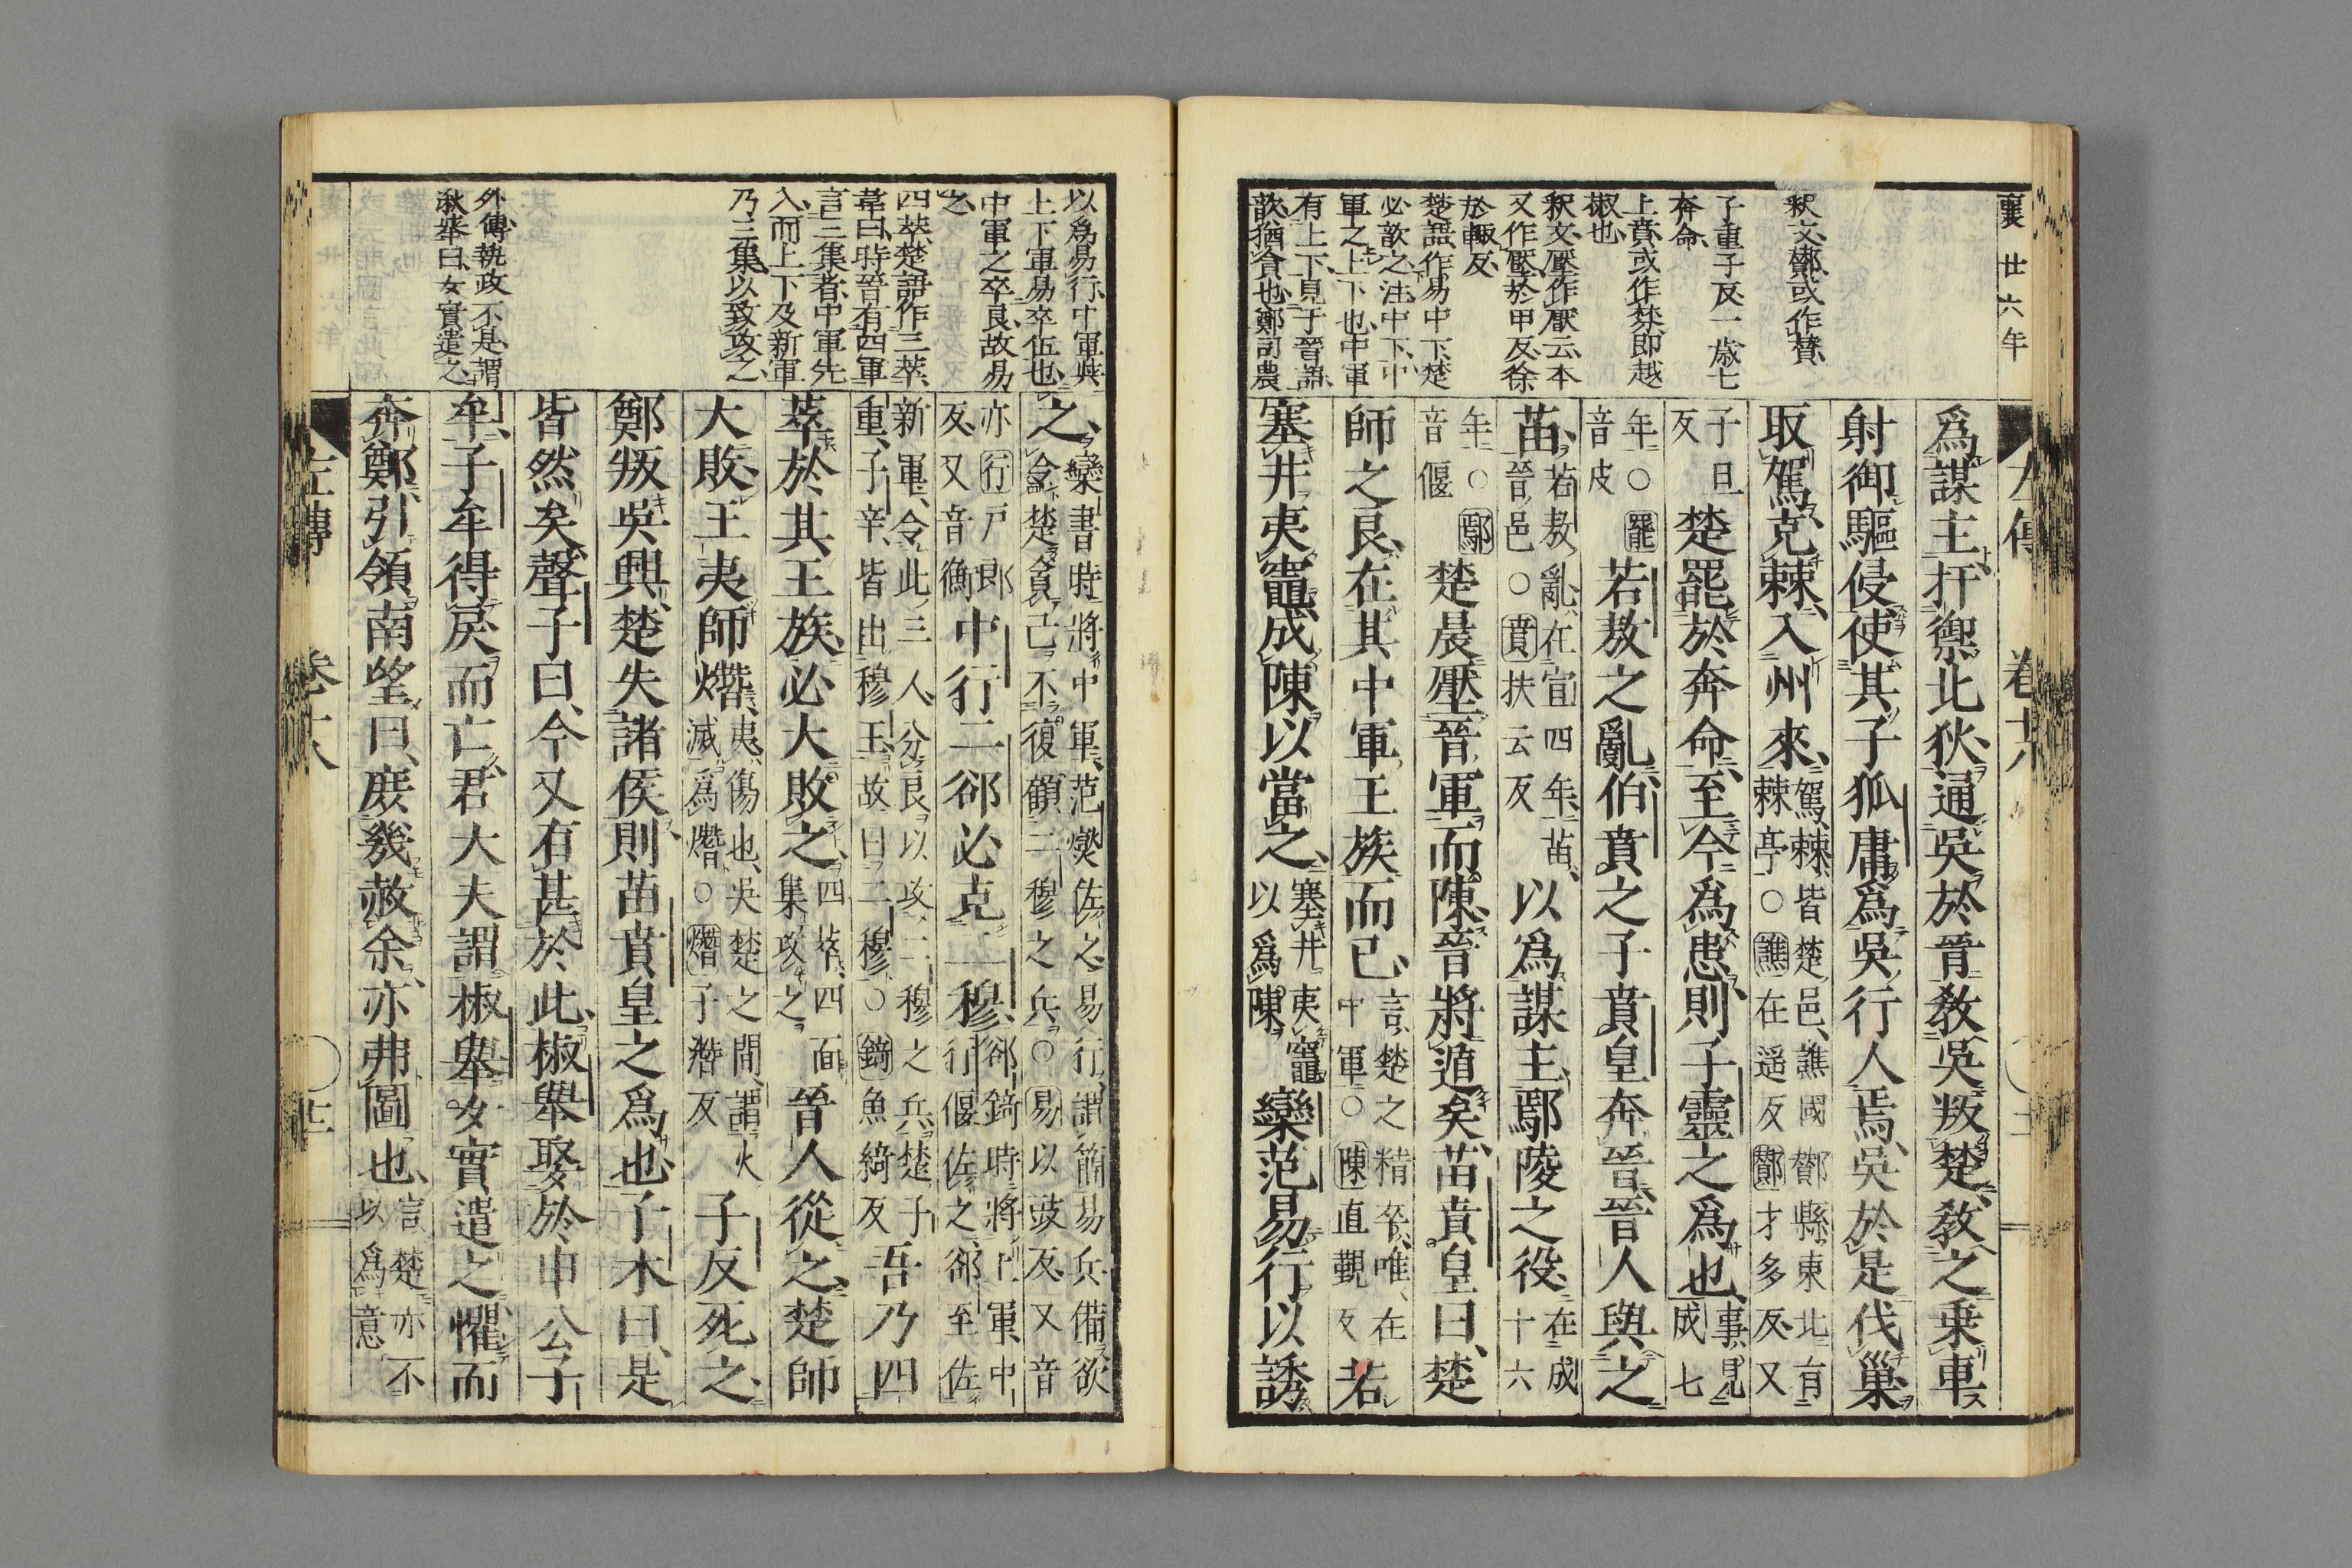 襄 廿六年
釈文鄼或作贊
子重子反一歳七
奔命
上賁或作棼即越
椒也
釈文壓作厭云本
又作壓於甲反徐
於輒反
楚語作易中下楚
必歆之注中下中
軍之上下也中軍
有上下見于晉語
歆猶貪也鄭司農
左傳 卷十八
爲謀主扞禦北狄通吳於晉教吳叛楚教之乗車
射御驅侵使其子狐庸爲吳行人焉吳於是伐巢
取駕克棘入州來駕棘皆楚邑譙國鄼縣東北有棘亭○譙在遥反鄼才多反又
子旦反楚罷於奔命至今爲患則子靈之爲也事見成七
年○罷音皮若敖之亂伯賁之子賁皇奔晉晉人與之
苗若敖亂在宣四年苗晉邑○賁扶云反以爲謀主鄢陵之役在成十六
年○鄢音偃楚晨壓晉軍而陳晉將遁矣苗賁皇曰楚
師之良在其中軍王族而已言楚之精卒唯在中軍○陳直觀反若
塞井夷竈成陳以當之塞井夷竈以爲陳欒范易行以誘
以爲易行中軍與
上下軍易卒伍也
中軍之卒良故易
之
四萃楚語作三萃
韋曰時晉有四軍
言三集者中軍先
入而上下及新軍
乃三集以致攻之
外傳執政不是謂
湫舉曰女實遣之
之欒書時將中軍范燮佐之易行謂簡易兵備欲令楚貪己不復顧二穆之兵○易以豉反又音
亦行戸郎反又音衡中行二郤必克二穆郤錡時將上軍中行偃佐之郤至佐
新軍令此三人分良以攻二穆之兵楚子重子辛皆出穆王故曰二穆○錡魚綺反吾乃四
萃於其王族必大敗之四萃四面集攻之晉人從之楚師
大敗王夷師熸夷傷也吳楚之間謂火滅爲熸○熸子潛反子反死之
鄭叛吳興楚失諸侯則苗賁皇之爲也子木曰是
皆然矣聲子曰今又有甚於此椒舉娶於申公子
牟子牟得戻而亡君大夫謂椒舉女實遣之懼而
奔鄭引領南望曰庶幾赦余亦弗圖也言楚亦不以爲意
左傳 卷十八